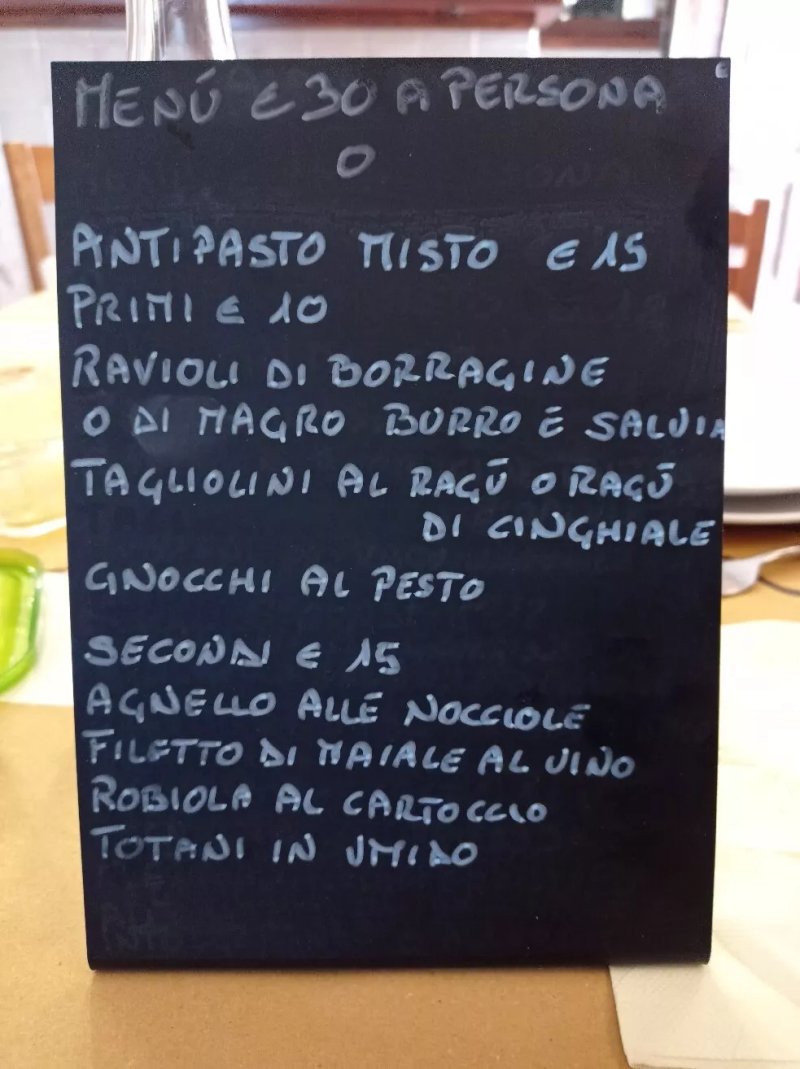 MENÚ € 30 A PERSONA
O
ANTIPASTO MISTO € 15
PRIMI € 10
RAVIOLI DI BORRAGINE
O DI MAGRO BURRO E SALVIA
TAGLIOLINI AL RAGÚ O RAGÚ
DI CINGHIALE
GNOCCHI AL PESTO
SECONDI € 15
AGNELLO ALLE NOCCIOLE
FILETTO DI MAIALE AL VINO
ROBIOLA AL CARTOCCIO
TOTANI IN UMIDO